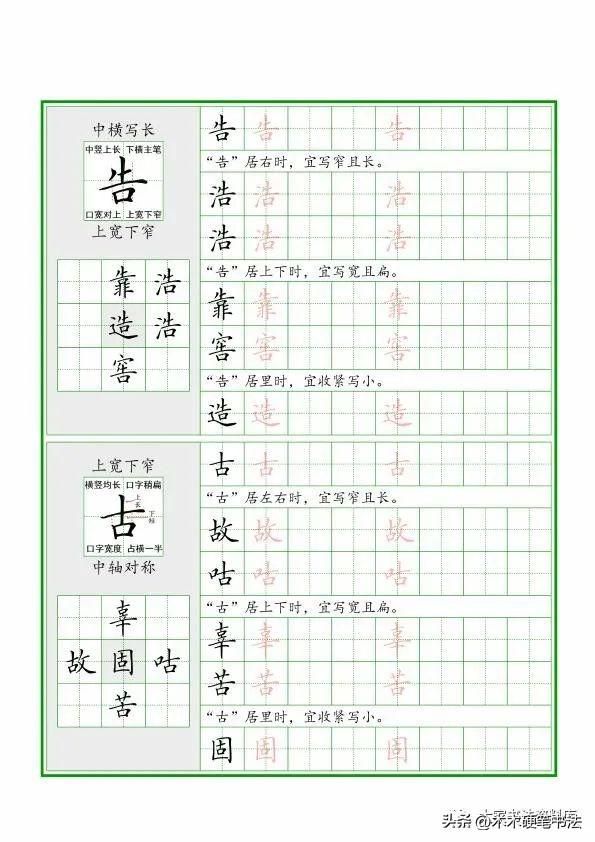 中横写长
中竖上长 下横主笔
告
口宽对上 上宽下窄
上宽下窄
靠 浩
造 浩
窖
告 告 告
“告”居右时，宜写窄且长。
浩 浩 浩
浩 浩 浩
“告”居上下时，宜写宽且扁。
靠 靠 靠
窖 窖 窖
“告”居里时，宜收紧写小。
造 造 造
上宽下窄
横竖均长 口字稍扁
古
上长
下短
口字宽度 占横一半
中轴对称
辜
故 固 咕
苦
古 古 古
“古”居左右时，宜写窄且长。
故 故 故
咕 咕 咕
“古”居上下时，宜写宽且扁。
辜 辜 辜
苦 苦 苦
“古”居里时，宜收紧写小。
固 固 固
头条 @木木硬笔书法